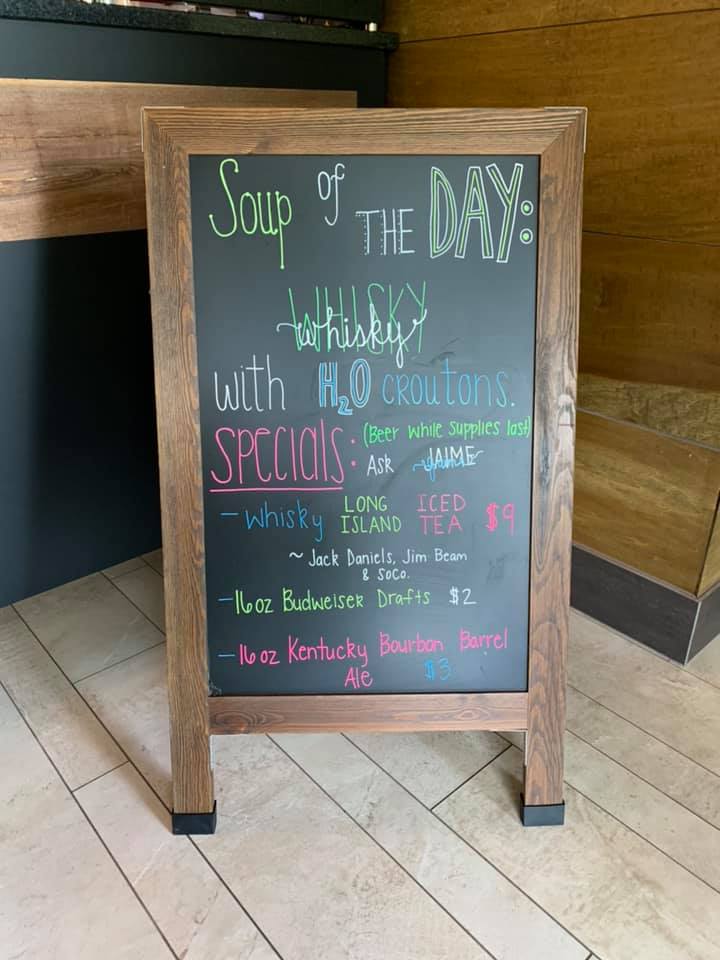 Soup of THE DAY:
WHISKY
whisky
with H₂O croutons.
Specials: (Beer while supplies last)
Ask JAIME
- Whisky LONG ISLAND ICED TEA $9
~ Jack Daniels, Jim Beam
& SoCo.
- 16oz Budweiser Drafts $2
- 16oz Kentucky Bourbon Barrel
Ale $3